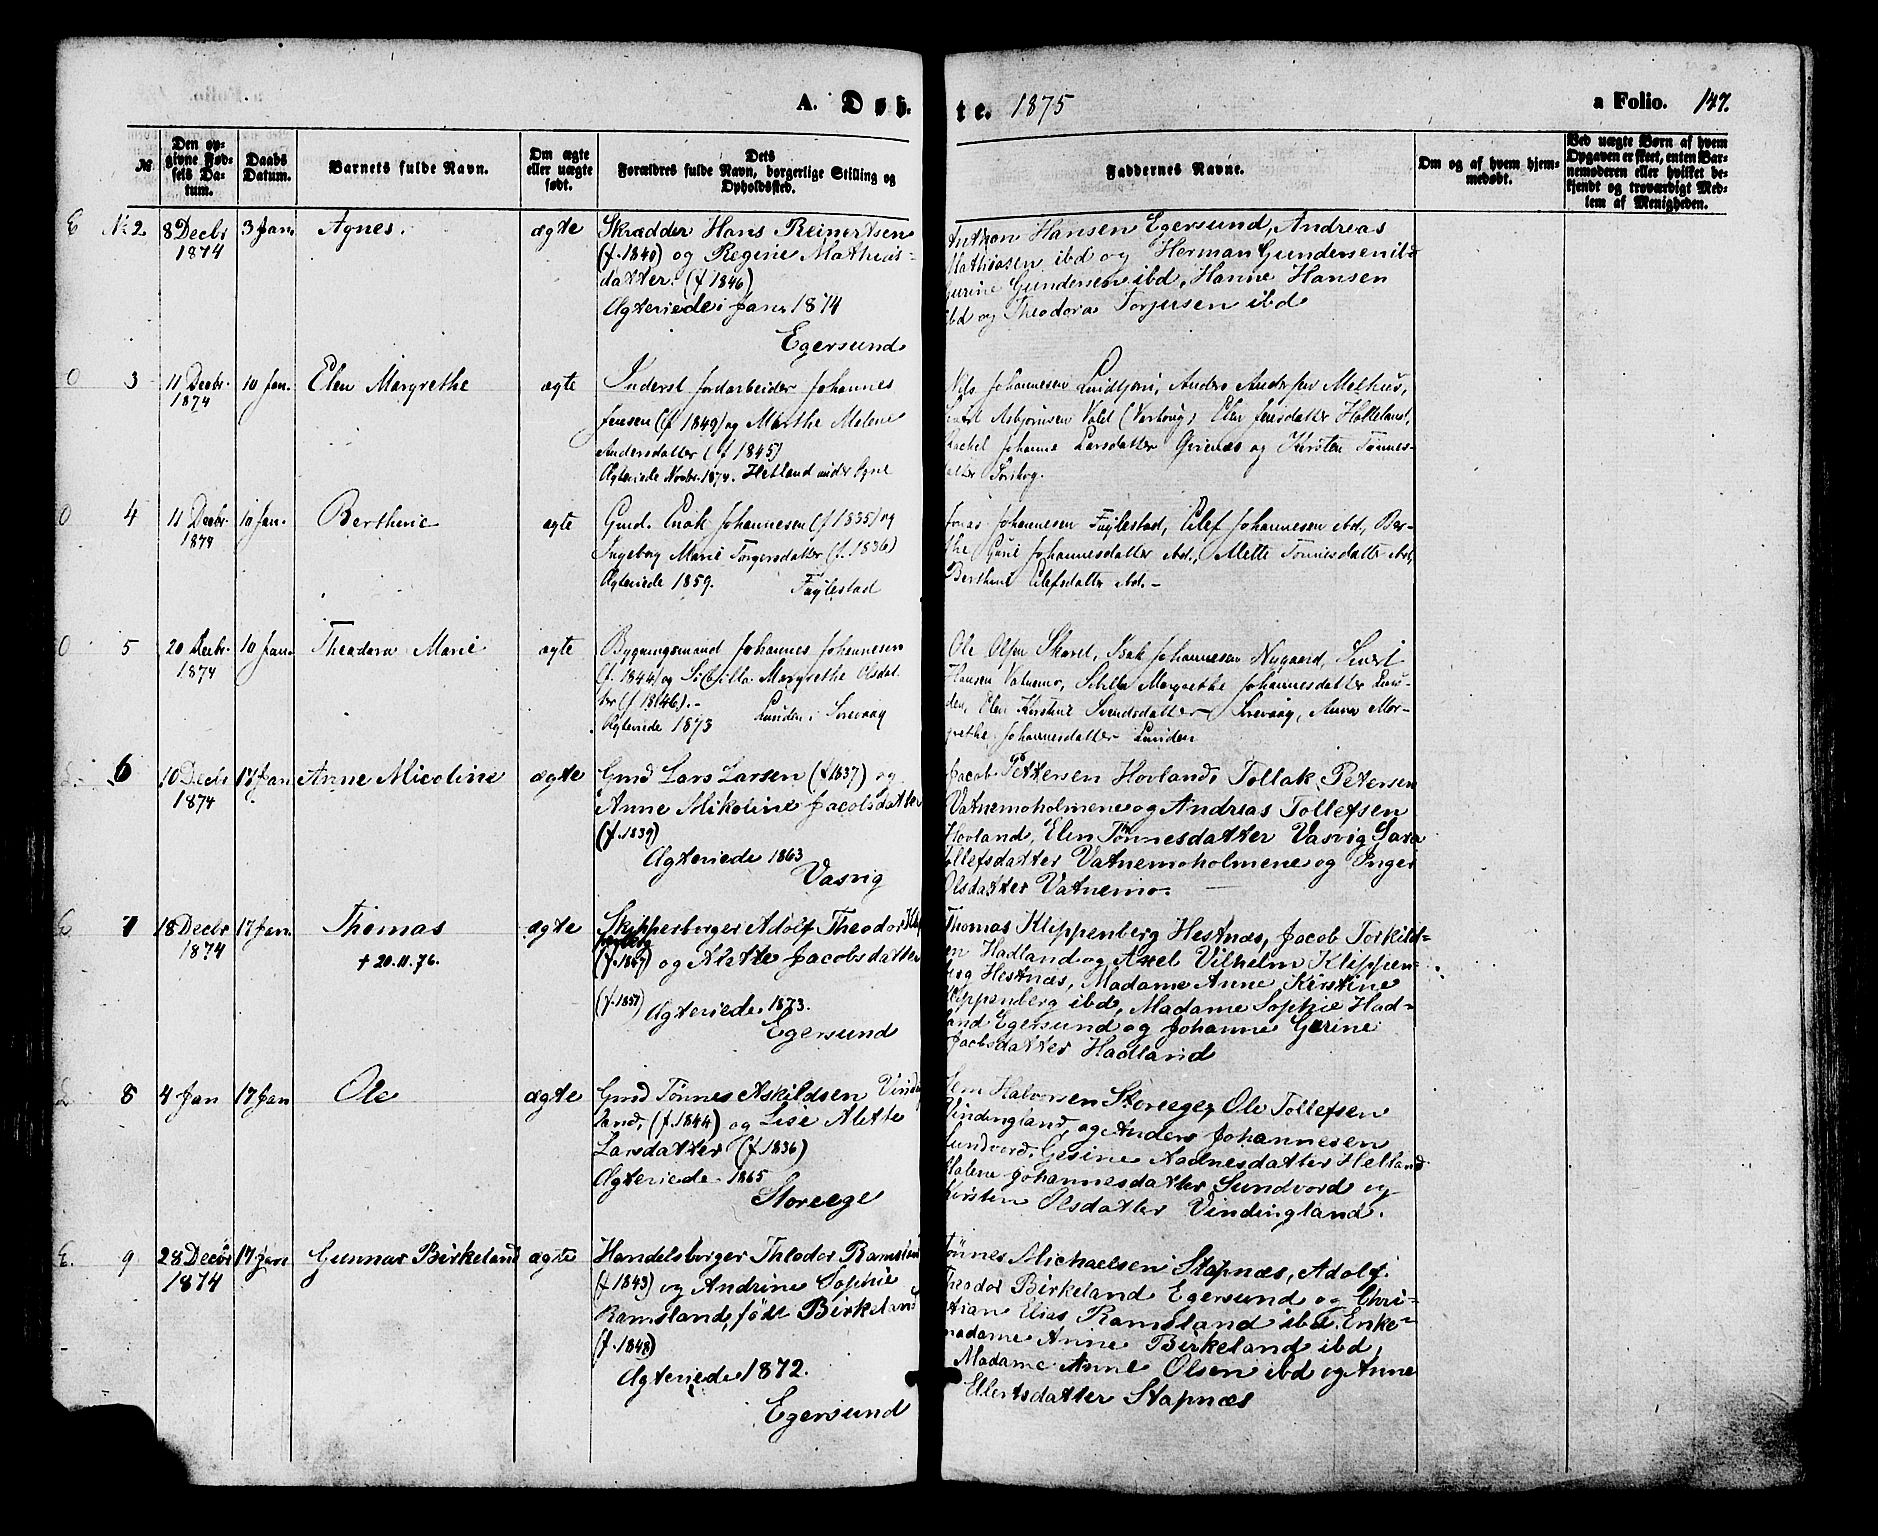 A. Døb-
te. 1875
a Folio. 147.
№
Den op-
givne Fød-
sels Da-
tum.
Daabs
Datum.
Barnets fulde Navn.
Om ægte
eller uægte
født.
Dets
Forældres fulde Navn, borgerlige Stilling og
Opholdssted.
Faddernes Navne.
Om og af hvem hjem-
medøbt.
Ved uægte Børn af hvem
Opgaven er skeet, enten Bar-
nemoderen eller hvilket be-
kjendt og troværdigt Med-
lem af Menigheden.
E No 2 8 Decbr 3 Jan. Agnes. ægte
1874
Skrædder Hans Reinertsen
(f. 1840) og Regine Mathias-
datter. (f 1846)
Ægteviede i Jan. 1874
Egersund
Anthon Hansen Egersund, Andreas
Mathiasen ibd og Herman Gundersen ibd
Gurine Gundersen ibd, Hanne Hansen
ibd og Theodora Torjusen ibd
O 3 11 Decbr. 10 Jan. Elen Margrethe ægte
1874
Inderst Jordarbeider Johannes
Jensen (f 1849) og Marthe Malene
Andersdatter (f 1845)
Ægteviede Novbr. 1874. Hetland under Ogne
Nils Johannesen Anders Andersen Melhus,
Asbjørnsen Elen Jensdatter
Rachel Johanne Larsdatter og Kirsten Tønnes-
datter
O 4 11 Decbr. 10 Jan. Berthine ægte
1874
Gmd. Enok Johannesen (f 1835) og
Ingeborg Marie Torgersdatter (f. 1836)
Ægteviede 1859.
Fuglestad
Jonas Johannesen Fuglestad, Elef Johannesen ibd, Ber-
the Johannesdatter ibd., Mette Tønnesdatter ibd,
Berthine Elefsdatter ibd.-
O 5 20 Decbr. 10 Jan. Theodora Marie ægte
1874
Bygningsmand Johannes Johannesen
(f. 1844) og Sibilla Margrethe Olsdat-
ter (f 1846).-
Ægteviede 1873 Lunden i Sirevaag
Ole Olsen Skaret, Isak Johannesen Nygaard, Sivert
Hansen Vatnemo, Margrethe Johannesdatter Lun-
den, Elen Kirstine Svendsdatter Sirevaag, Anna Mar-
grethe Johannesdatter Lunden
6 10 Decbr 17 Jan Anne Micoline ægte
1874
Gmd Lars Larsen (f 1837) og
Anne Mikoline Jacobsdatter
(f. 1839)
Ægteviede 1863
Vasvig
Jacob Pettersen Hovland, Tollak Petersen
Vatnemoholmene og Andreas Tollefsen
Hovland, Elen Tønnesdatter Vasvig Sara
Tollefsdatter Vatnemoholmene og Inger
Olsdatter Vatnemo.
E 7 18 Decbr 17 Jan. Thomas ægte
1874
† 20.11.76.
Skipperborger Adolf Theodor
(f. 1847) og Alette Jacobsdatter
(f. 1851) Ægteviede 1873.
Egersund
Thomas Klippenberg Hestnæs, Jacob Torkild-
sen Hadland og Axel Vilhelm Klippen-
berg Hestnæs, Madame Anne Kirstine
Klippenberg ibd, Madame Sophie Had-
land Egersund og Johanne Gurine
Jacobsdatter Hadland
8 4 Jan 17 Jan Ole ægte
Gmd Tønnes Askildsen Vinding-
land, (f. 1844) og Lise Alette
Larsdatter (f. 1836)
Ægteviede 1865
Storeege
Jens Halvorsen Storeege, Ole Tollefsen
Vindingland, og Anders Johannesen
Sundvord, Gesine Aadnesdatter Helland
Malene Johannesdatter Sundvord og
Kirsten Olsdatter Vindingland.
E. 9 28 Decbr 17 Jan Gunnar Birkeland ægte
1874
Handelsborger Theodor Ramsland
(f 1843) og Andrine Sophie
Ramsland, født Birkeland
(f. 1848)
Ægteviede 1872.
Egersund
Tønnes Michaelsen Stapnæs, Adolf
Theodor Birkeland Egersund og Chri-
stian Elias Ramsland ibd. Enke-
madame Anne Birkeland ibd,
Madame Anne Olsen ibd og Anne
Elertsdatter Stapnæs